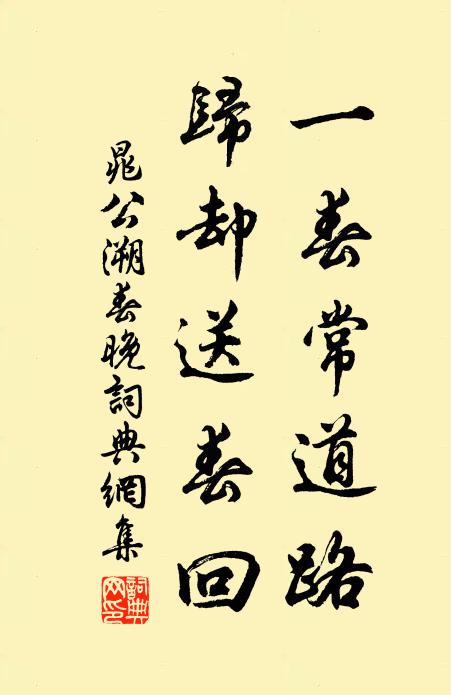 一春常道路
歸却送春回
晁公溯春晚詞典網集
詞典網印